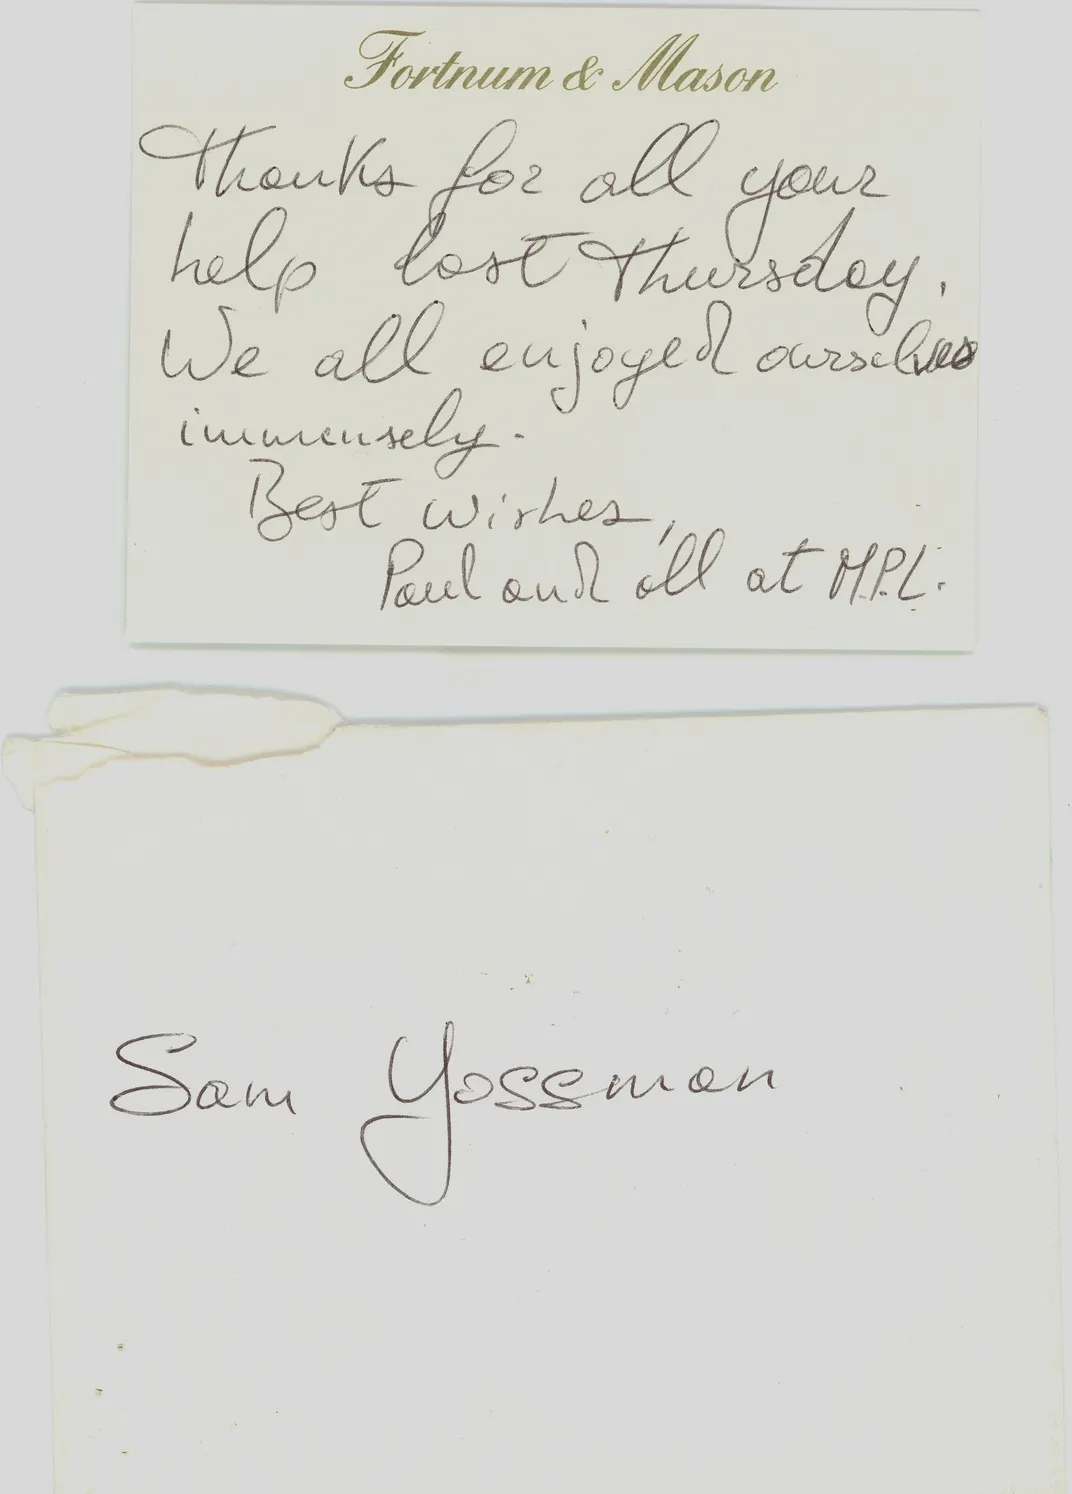 Fortnum & Mason
Thanks for all your
help last Thursday.
We all enjoyed ourselves
immensely.
Best wishes,
Paul and all at M.P.L.
Sam Yossman